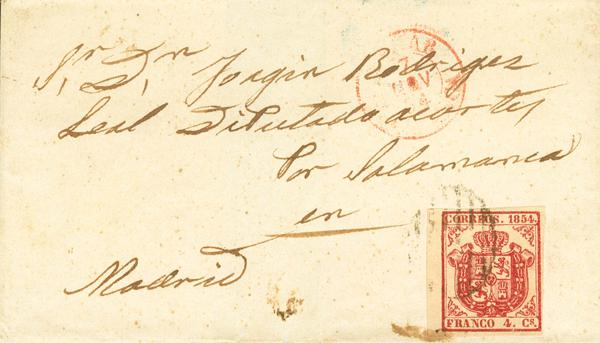 Sr. Dn. Joaqin Rodrigez
Leal Diputado acortes
Por Salamanca
en
Madrid
CORREOS. 1854.
FRANCO 4. Cs.